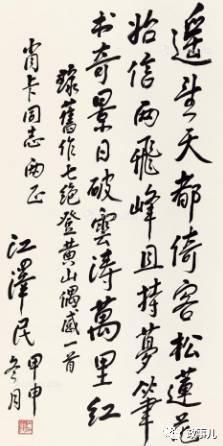 遙望天都倚客松蓮花
始信两飛峰且持夢筆
书奇景日破雲濤萬里紅
録舊作七絕登黃山偶感一首
肖卡同志两正
江澤民
甲申
冬月
政事儿